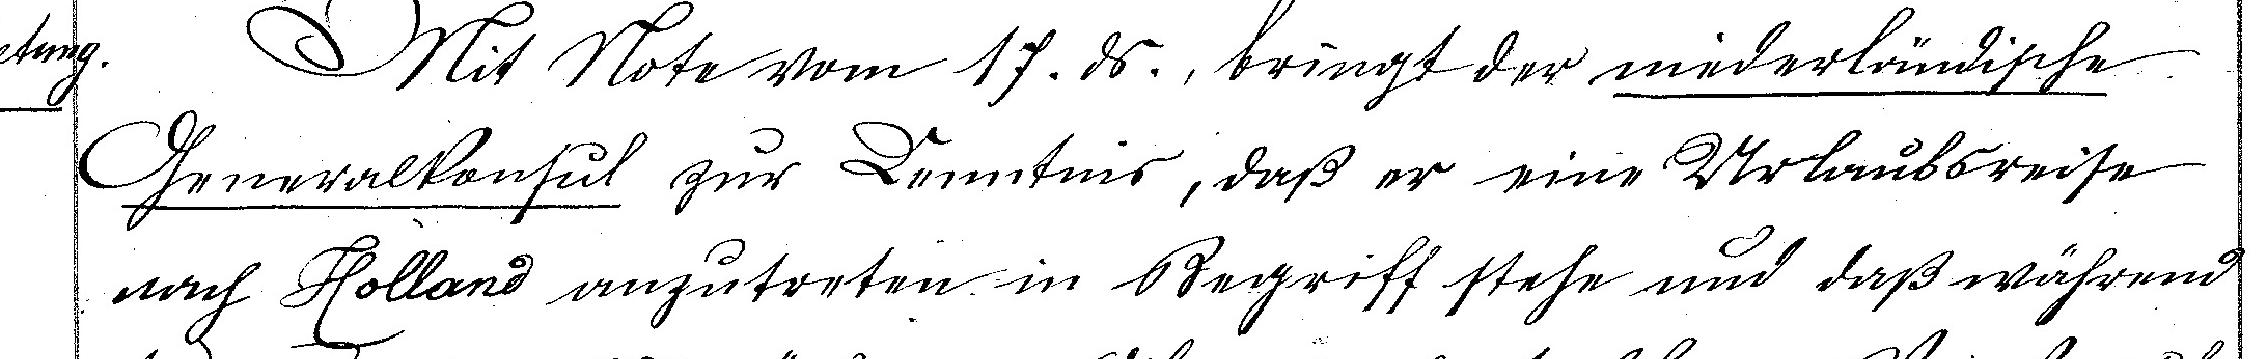 Mit Note vom 17. ds., bringt der niederländische
Generalkonsul zur Kenntnis, daß er eine Urlaubsreise
nach Holland anzutreten in Begriff stehe und daß während